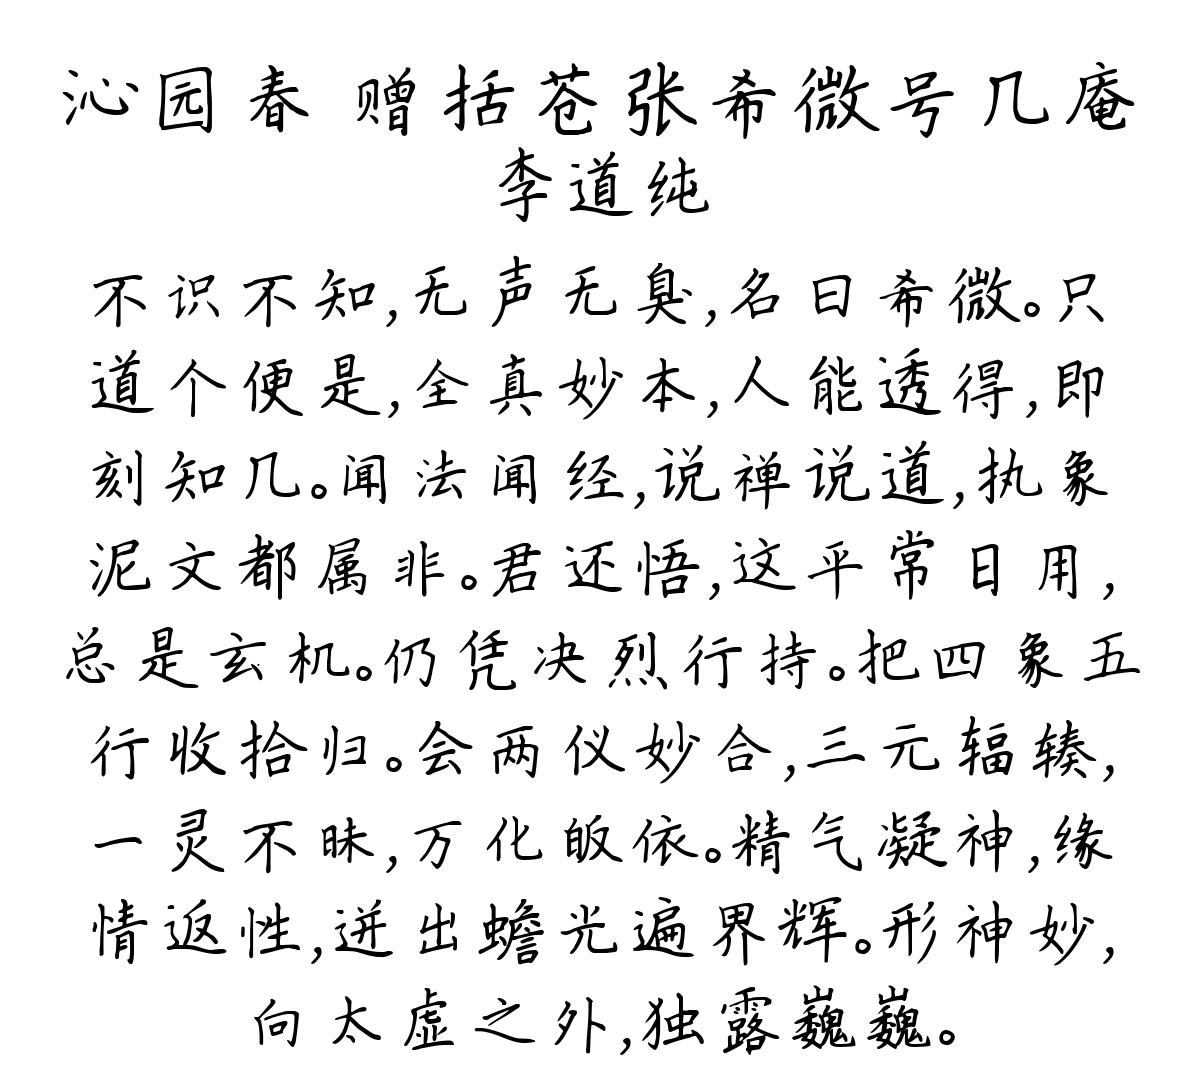 沁园春 赠括苍张希微号几庵
李道纯
不识不知,无声无臭,名曰希微。只
道个便是,全真妙本,人能透得,即
刻知几。闻法闻经,说禅说道,执象
泥文都属非。君还悟,这平常日用,
总是玄机。仍凭决烈行持。把四象五
行收拾归。会两仪妙合,三元辐辏,
一灵不昧,万化皈依。精气凝神,缘
情返性,迸出蟾光遍界辉。形神妙,
向太虚之外,独露巍巍。